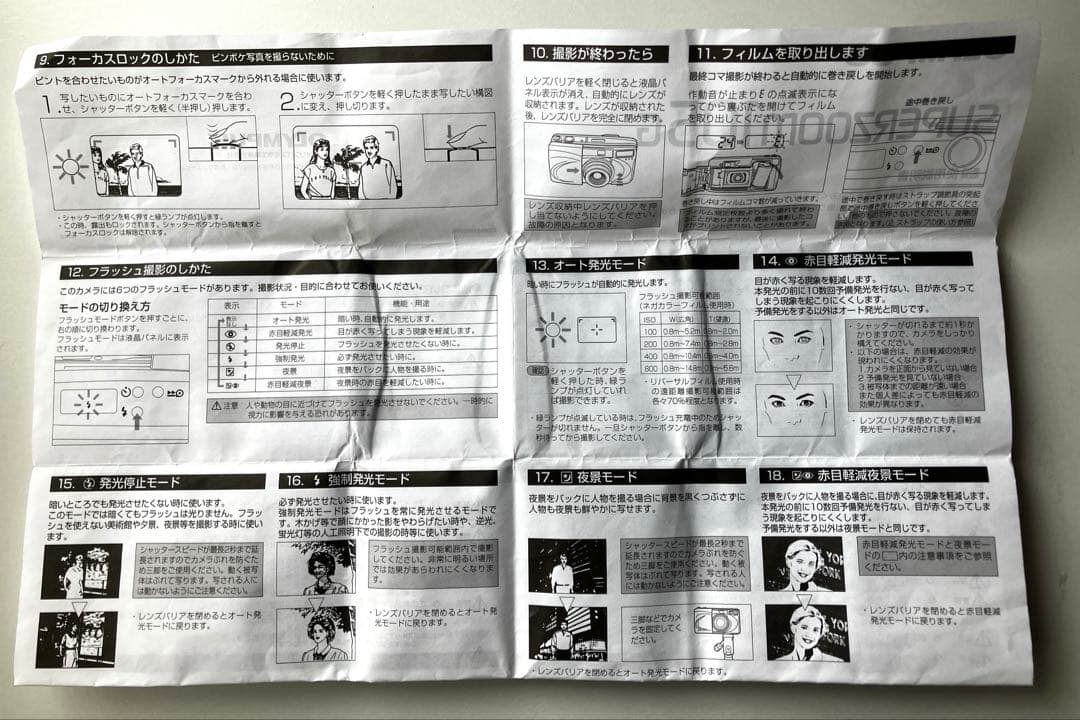 9. フォーカスロックのしかた ピンボケ写真を撮らないために
ピントを合わせたいものがオートフォーカスマークから外れる場合に使います。
1. 写したいものにオートフォーカスマークを合わ
せ、シャッターボタンを軽く(半押し)押します。
2. シャッターボタンを軽く押したまま写したい構図
に変え、押し切ります。
・シャッターボタンを軽く押すと緑ランプが点灯します。
・この時、露出もロックされます。シャッターボタンから指を離すと
フォーカスロックは解除されます。
10. 撮影が終わったら
レンズバリアを軽く閉じると液晶パ
ネル表示が消え、自動的にレンズが
収納されます。レンズが収納された
後、レンズバリアを完全に閉めます。
レンズ収納中レンズバリアを押
し当てないようにしてください。
故障の原因となります。
11. フィルムを取り出します
最終コマ撮影が終わると自動的に巻き戻しを開始します。
作動音が止まりEの点滅表示にな
ってから裏ぶたを開けてフィルム
を取り出してください。
途中巻き戻し
24 → E
巻き戻し中はフィルムコマ数が減っていきます。
フィルム規定枚数より多く撮れて終わ
ることがありますが、最後に撮影したコ
マがプリントされないことがあります。
途中で巻き戻す時はストラップ調節具の突起
部で途中巻き戻しボタンを軽く押してくださ
い。
12. フラッシュ撮影のしかた
このカメラには6つのフラッシュモードがあります。撮影状況・目的に合わせてお使いください。
モードの切り換え方
フラッシュモードボタンを押すごとに、
右の順に切り換わります。
フラッシュモードは液晶パネルに表示
されます。
表示 モード 機能・用途
表示なし オート発光 暗い時、自動的に発光します。
赤目軽減発光 目が赤く写ってしまう現象を軽減します。
発光停止 フラッシュを発光させたくない時に。
強制発光 必ず発光させたい時に。
夜景 夜景をバックに人物を撮る時に。
赤目軽減夜景 夜景時の赤目を軽減したい時に。
注意 人や動物の目に近づけてフラッシュを発光させないでください。一時的に
視力に影響を与える恐れがあります。
13. オート発光モード
暗い時にフラッシュが自動的に発光します。
確認 シャッターボタンを
軽く押した時、緑ラ
ンプが点灯していれ
ば撮影できます。
フラッシュ撮影可能範囲
(ネガカラーフィルム使用時)
ISO W(広角) T(望遠)
100 0.8m~5.2m 0.8m~2.0m
200 0.8m~7.4m 0.8m~2.8m
400 0.8m~10.4m 0.8m~4.0m
800 0.8m~14.8m 0.8m~5.6m
・リバーサルフィルム使用時
の遠距離撮影可能範囲は
各々70%程度となります。
・緑ランプが点滅している時は、フラッシュ充電中のためシャッ
ターが切れません。一旦シャッターボタンから指を離し、数
秒待ってから撮影してください。
14. 赤目軽減発光モード
目が赤く写る現象を軽減します。
本発光の前に10数回予備発光を行ない、目が赤く写って
しまう現象を起こりにくくします。
予備発光をする以外はオート発光と同じです。
・シャッターが切れるまで約1秒か
かりますので、カメラをしっかり
構えてください。
・以下の場合は、赤目軽減の効果が
現われにくくなります。
1.カメラを正面から見ていない場合
2.予備発光を見ていない場合
3.被写体までの距離が遠い場合
また個人差によっても赤目軽減の
効果が異なります。
・レンズバリアを閉めても赤目軽減
発光モードは保持されます。
15. 発光停止モード
暗いところでも発光させたくない時に使います。
このモードでは暗くてもフラッシュは光りません。フラッ
シュを使えない美術館や夕景、夜景等を撮影する時に使い
ます。
シャッタースピードが最長2秒まで延
長されますのでカメラぶれを防ぐた
め三脚をご使用ください。動く被写
体はぶれて写ります。写される人に
は動かないようにご注意ください。
・レンズバリアを閉めるとオート発
光モードに戻ります。
16. 強制発光モード
必ず発光させたい時に使います。
強制発光モードはフラッシュを常に発光させるモードで
す。木かげ等で顔にかかった影をやわらげたい時や、逆光、
蛍光灯などの人工照明下での撮影の時等に使います。
フラッシュ撮影可能範囲内で撮影
してください。非常に明るい場所
では効果があらわれにくくなりま
す。
・レンズバリアを閉めるとオート発
光モードに戻ります。
17. 夜景モード
夜景をバックに人物を撮る場合に背景を黒くつぶさずに
人物も夜景も鮮やかに写せます。
シャッタースピードが最長2秒まで
延長されますのでカメラぶれを防ぐ
ため三脚をご使用ください。動く被
写体はぶれて写ります。写される人
には動かないようにご注意ください。
三脚などでカメ
ラを固定してく
ださい。
・レンズバリアを閉めるとオート発光モードに戻ります。
18. 赤目軽減夜景モード
夜景をバックに人物を撮る場合に、目が赤く写る現象を軽減します。
本発光の前に10数回予備発光を行ない、目が赤く写ってしま
う現象を起こりにくくします。
予備発光をする以外は夜景モードと同じです。
赤目軽減発光モードと夜景モー
ドの□内の注意事項をご参照
ください。
・レンズバリアを閉めると赤目軽減
発光モードに戻ります。